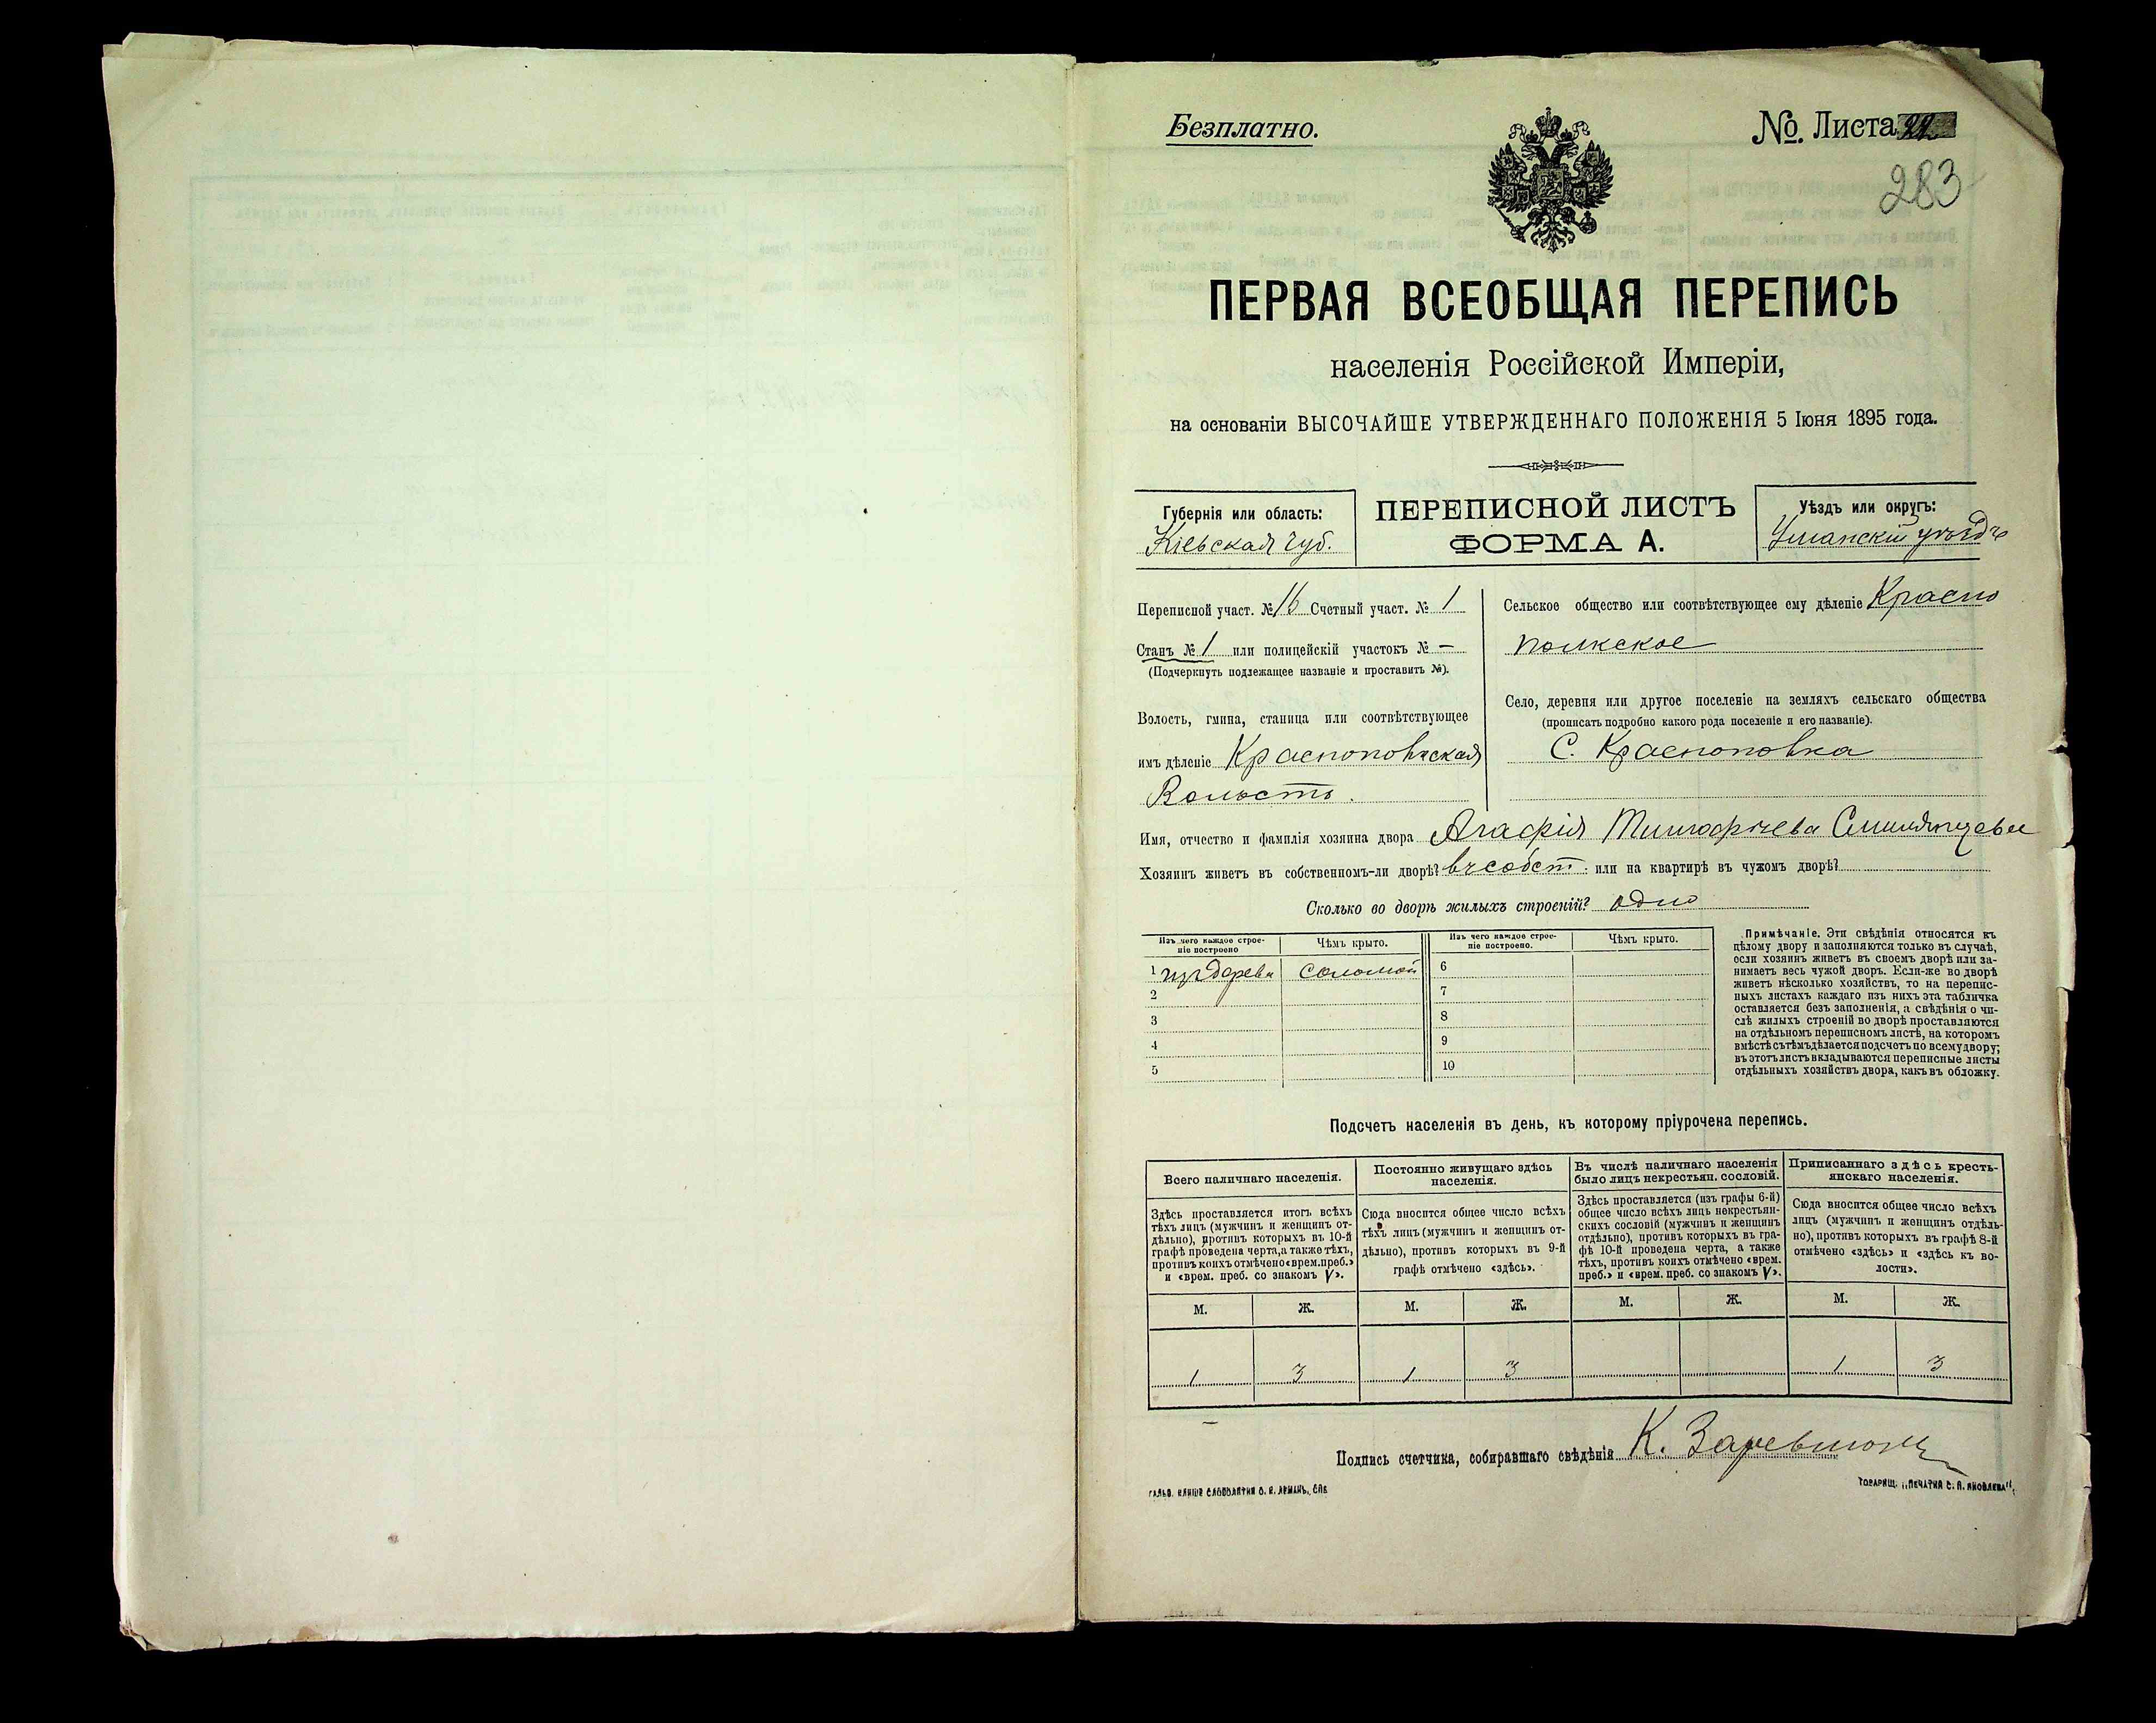 Безплатно.
№ Листа
283
ПЕРВАЯ ВСЕОБЩАЯ ПЕРЕПИСЬ
населенія Россійской Имперіи,
на основаніи ВЫСОЧАЙШЕ УТВЕРЖДЕННАГО ПОЛОЖЕНІЯ 5 Іюня 1895 года.
Губернія или область:
Кіевская губ.
ПЕРЕПИСНОЙ ЛИСТЪ
ФОРМА А.
Уѣздъ или округъ:
Уманскій уѣздъ
Переписной участ. № 16 Счетный участ. № 1
Станъ № 1 или полицейскій участокъ № —
(Подчеркнуть подлежащее названіе и проставить №).
Волость, гмина, станица или соотвѣтствующее
имъ дѣленіе Краснополкская
Волость.
Сельское общество или соотвѣтствующее ему дѣленіе Красно
полкское
Село, деревня или другое поселеніе на земляхъ сельскаго общества
(прописать подробно какого рода поселеніе и его названіе).
С.
Имя, отчество и фамилія хозяина двора Агафія Тимофѣева
Хозяинъ живетъ въ собственномъ-ли дворѣ? въ собст. или на квартирѣ въ чужомъ дворѣ?
Сколько во дворѣ жилыхъ строеній? одно
Изъ чего каждое строе-
ніе построено
Чѣмъ крыто.
Изъ чего каждое строе-
ніе построено.
Чѣмъ крыто.
1 изъ дерева соломой
2
3
4
5
6
7
8
9
10
Примѣчаніе. Эти свѣдѣнія относятся къ
цѣлому двору и заполняются только въ случаѣ,
если хозяинъ живетъ въ своемъ дворѣ или за-
нимаетъ весь чужой дворъ. Если-же во дворѣ
живетъ нѣсколько хозяйствъ, то на перепис-
ныхъ листахъ каждаго изъ нихъ эта табличка
оставляется безъ заполненія, а свѣдѣнія о чи-
слѣ жилыхъ строеній во дворѣ проставляются
на отдѣльномъ переписномъ листѣ, на которомъ
вмѣстѣ съ тѣмъ дѣлается подсчетъ по всему двору;
въ этотъ листъ вкладываются переписные листы
отдѣльныхъ хозяйствъ двора, какъ въ обложку.
Подсчетъ населенія въ день, къ которому пріурочена перепись.
Всего наличнаго населенія.
Здѣсь проставляется итогъ всѣхъ
тѣхъ лицъ (мужчинъ и женщинъ от-
дѣльно), противъ которыхъ въ 10-й
графѣ проведена черта, а также тѣхъ,
противъ коихъ отмѣчено «врем. преб.»
и «врем. преб. со знакомъ V».
Постоянно живущаго здѣсь
населенія.
Сюда вносится общее число всѣхъ
тѣхъ лицъ (мужчинъ и женщинъ от-
дѣльно), противъ которыхъ въ 9-й
графѣ отмѣчено «здѣсь».
Въ числѣ наличнаго населенія
было лицъ некрестьян. сословій.
Здѣсь проставляется (изъ графы 6-й)
общее число всѣхъ лицъ некрестьян-
скихъ сословій (мужчинъ и женщинъ
отдѣльно), противъ которыхъ въ гра-
фѣ 10-й проведена черта, а также
тѣхъ, противъ коихъ отмѣчено «врем.
преб.» и «врем. преб. со знакомъ V».
Приписаннаго здѣсь кресть-
янскаго населенія.
Сюда вносится общее число всѣхъ
лицъ (мужчинъ и женщинъ отдѣль-
но), противъ которыхъ въ графѣ 8-й
отмѣчено «здѣсь» и «здѣсь къ во-
лости».
М. Ж. М. Ж. М. Ж. М. Ж.
1 3 1 3 1 3
Подпись счетчика, собиравшаго свѣдѣнія К.
ТОВАРИЩ. „ПЕЧАТНЯ С. П. ЯКОВЛЕВА".